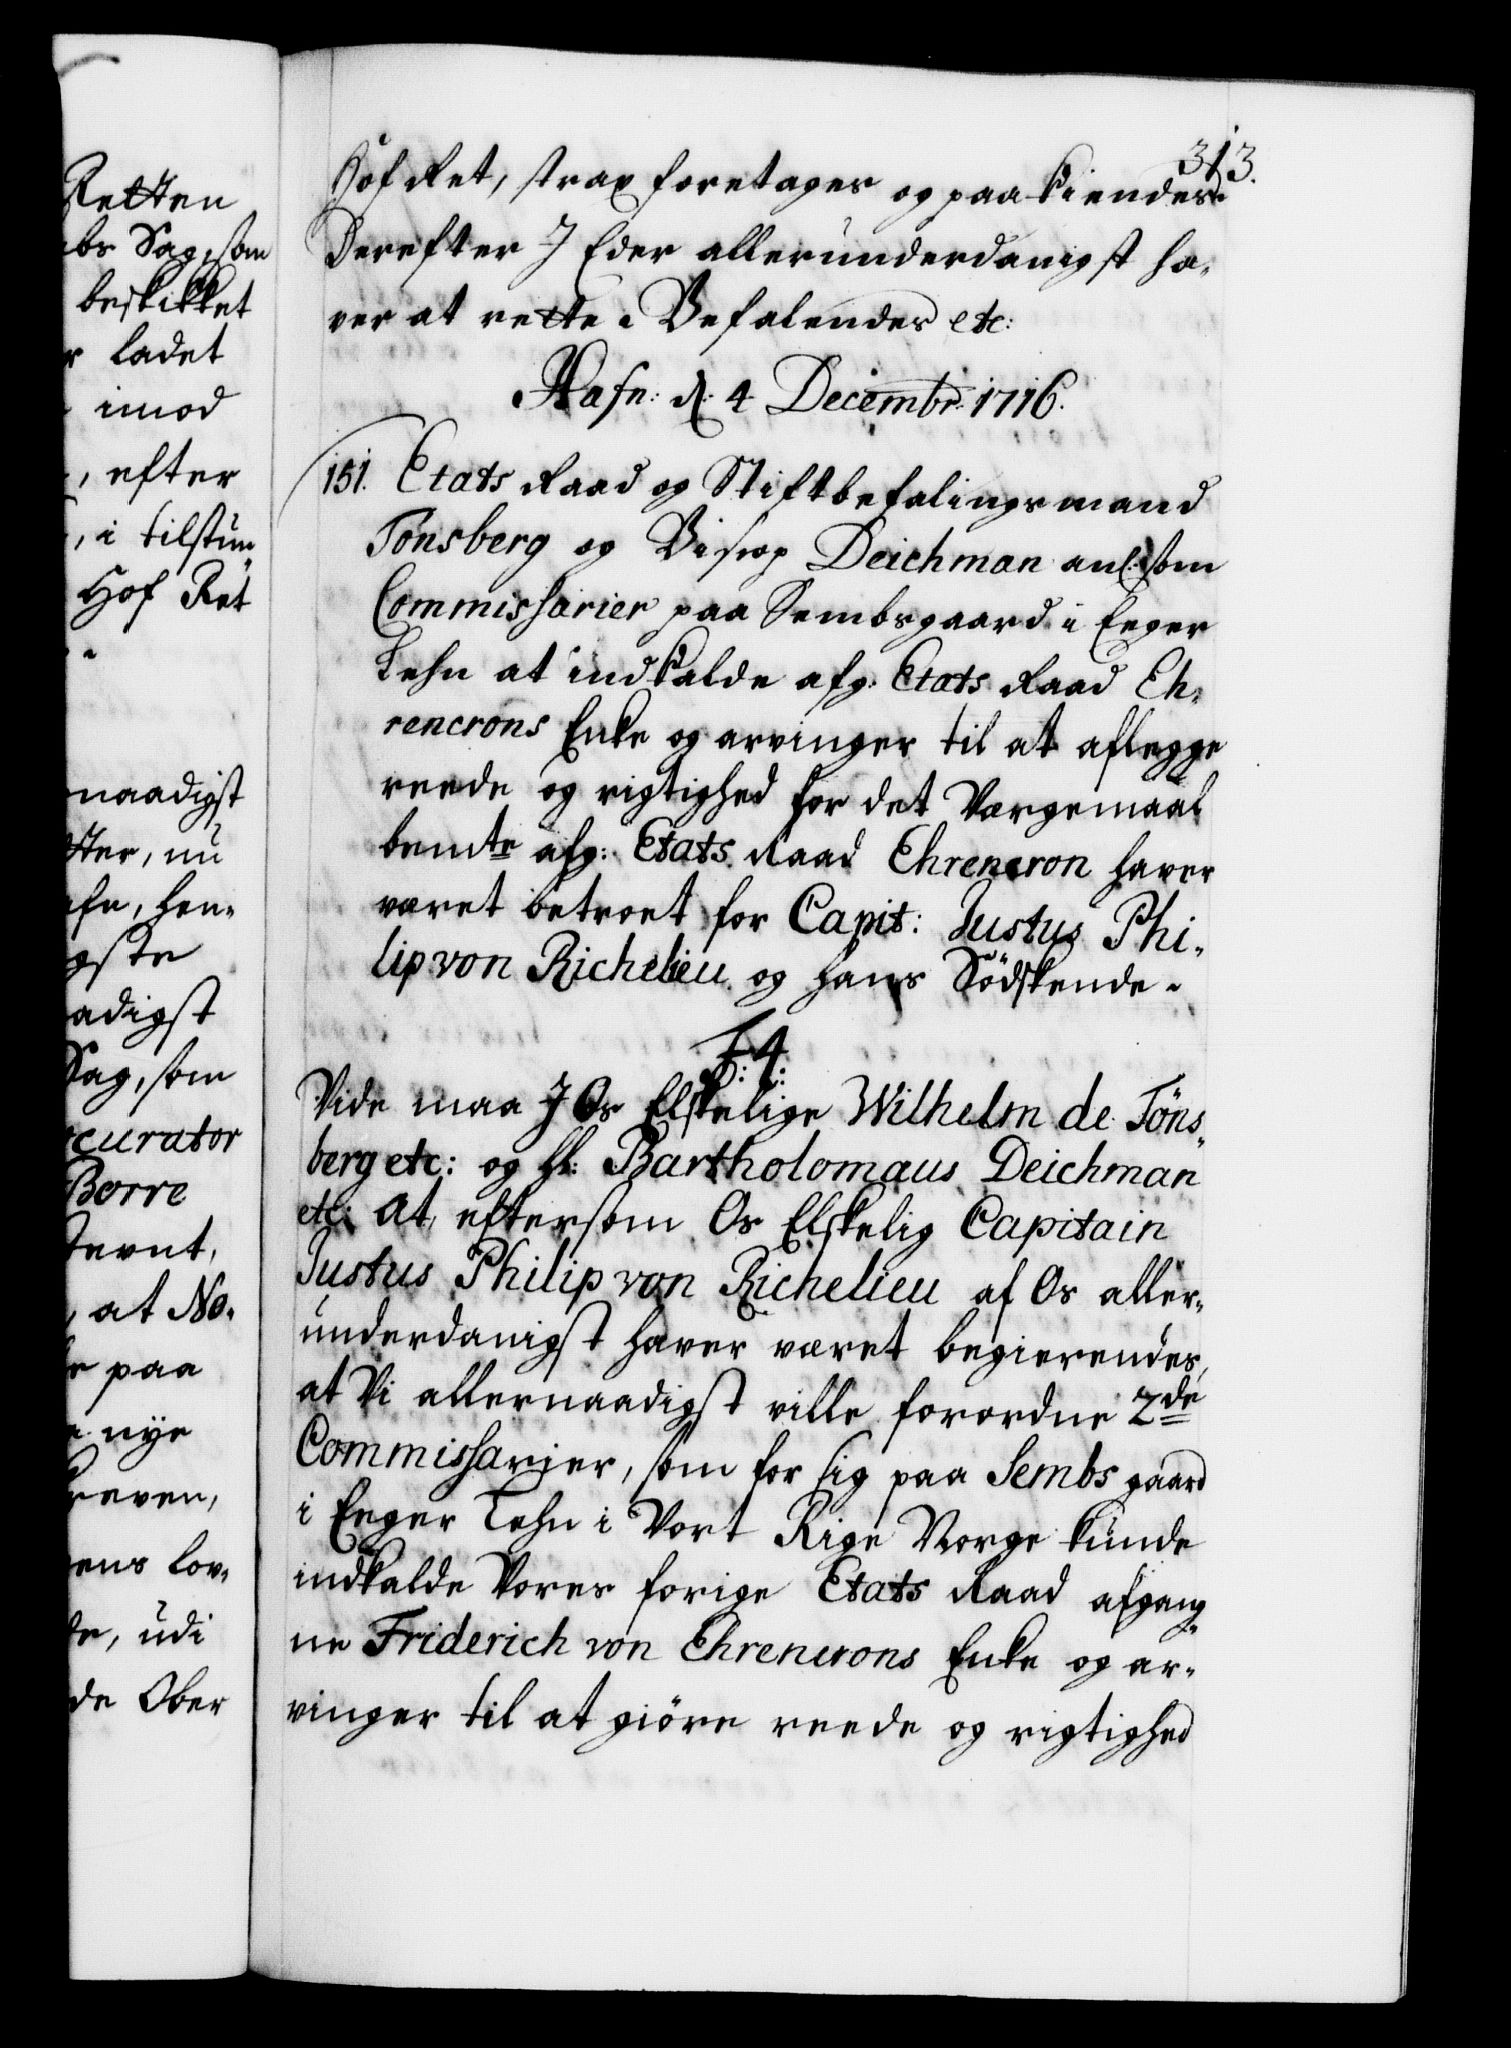 Retten
bs Sag, som
beskikket
r ladet
imod
, efter
, i tilstun
Hof Ret
naadigst
tter, nu
afn, hen-
gste
adigst
Sag, som
curator
Borre
tevnt,
, at No-
r paa
nye
reven,
ens lov-
te, udi
de Ober
313.
Hof Ret, strax foretages og paakiendes.
Derefter I Eder allerunderdanigst ha-
ver at rette. Befalendes etc:
Hafn: d. 4 Decembr: 1716.
151. Etats Raad og Stiftbefalingsmand
Tönsberg og Biscop Deichman anl: som
Commissarier paa Sembsgaard i Eeger
Lehn at indkalde afg: Etats Raad Eh-
rencrons Enke og arvinger til at aflegge
reede og rigtighed for det Værgemaal
bemte afg: Etats Raad Ehrencron haver
været betroet for Capit: Justus Phi-
lip von Richelieu og hans Södskende.
F: 4:
Vide maa I Os Elskelige Wilhelm de Töns-
berg etc: og Hr: Bartholomæus Deichman
etc: At, eftersom Os Elskelig Capitain
Justus Philip von Richelieu af Os aller-
underdanigst haver været begierendes,
at Vi allernaadigst ville forordne 2de
Commissarier, som for sig paa Sembs gaard
i Eeger Lehn i Vort Rige Norge kunde
indkalde Vores forige Etats Raad afgang-
ne Friderich von Ehrencrons Enke og ar-
vinger til at giöre reede og rigtighed